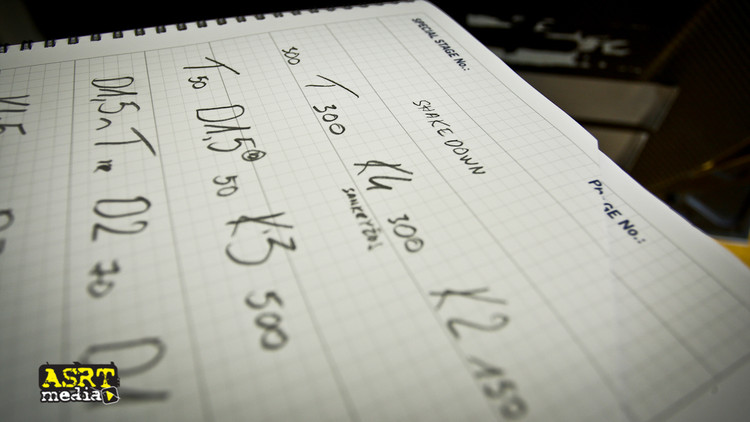 SPECIAL STAGE No.:
PAGE No.:
SHAKEDOWN
300 T 300 K4 300 K2 150
SANKRYŽA!
T 50 D1,5 50 K3 500
D1,5 T D2 70 D1
K1,5
ASRT
media